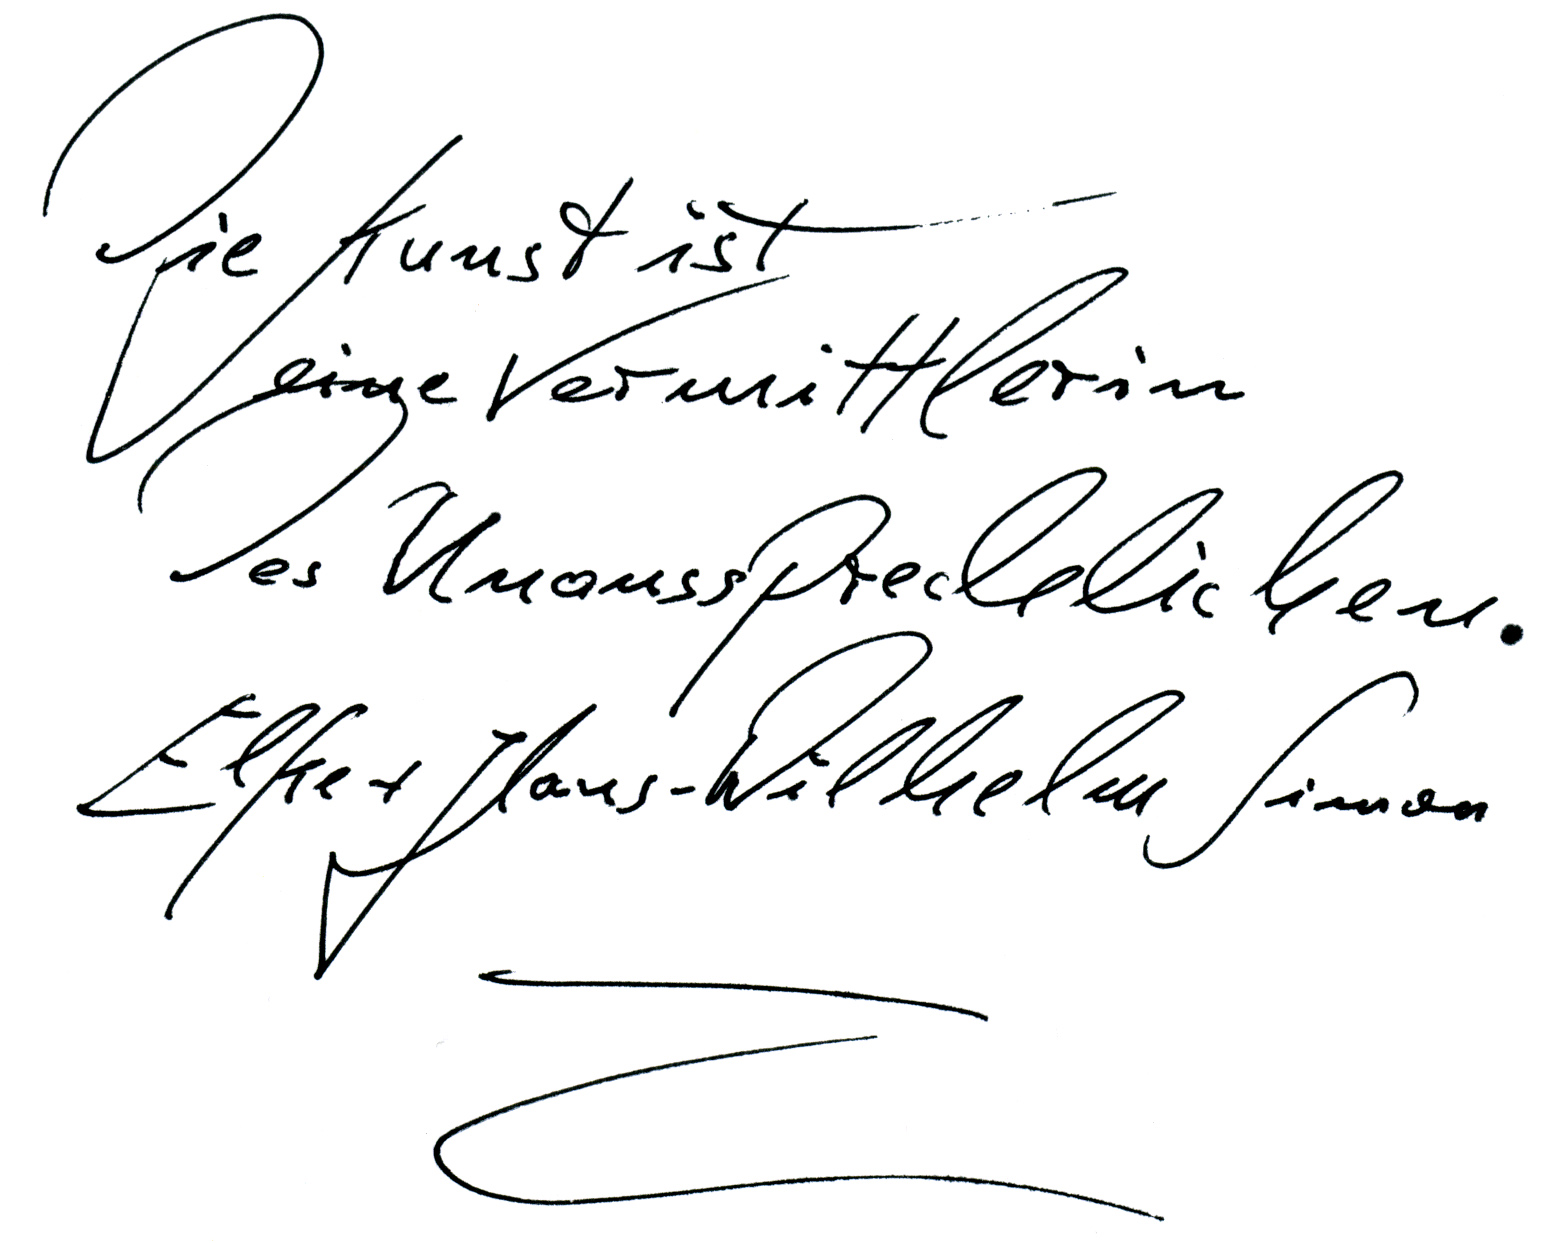 Die Kunst ist
eine Vermittlerin
des Unaussprechlichen.
Elke + Hans-Wilhelm Simon